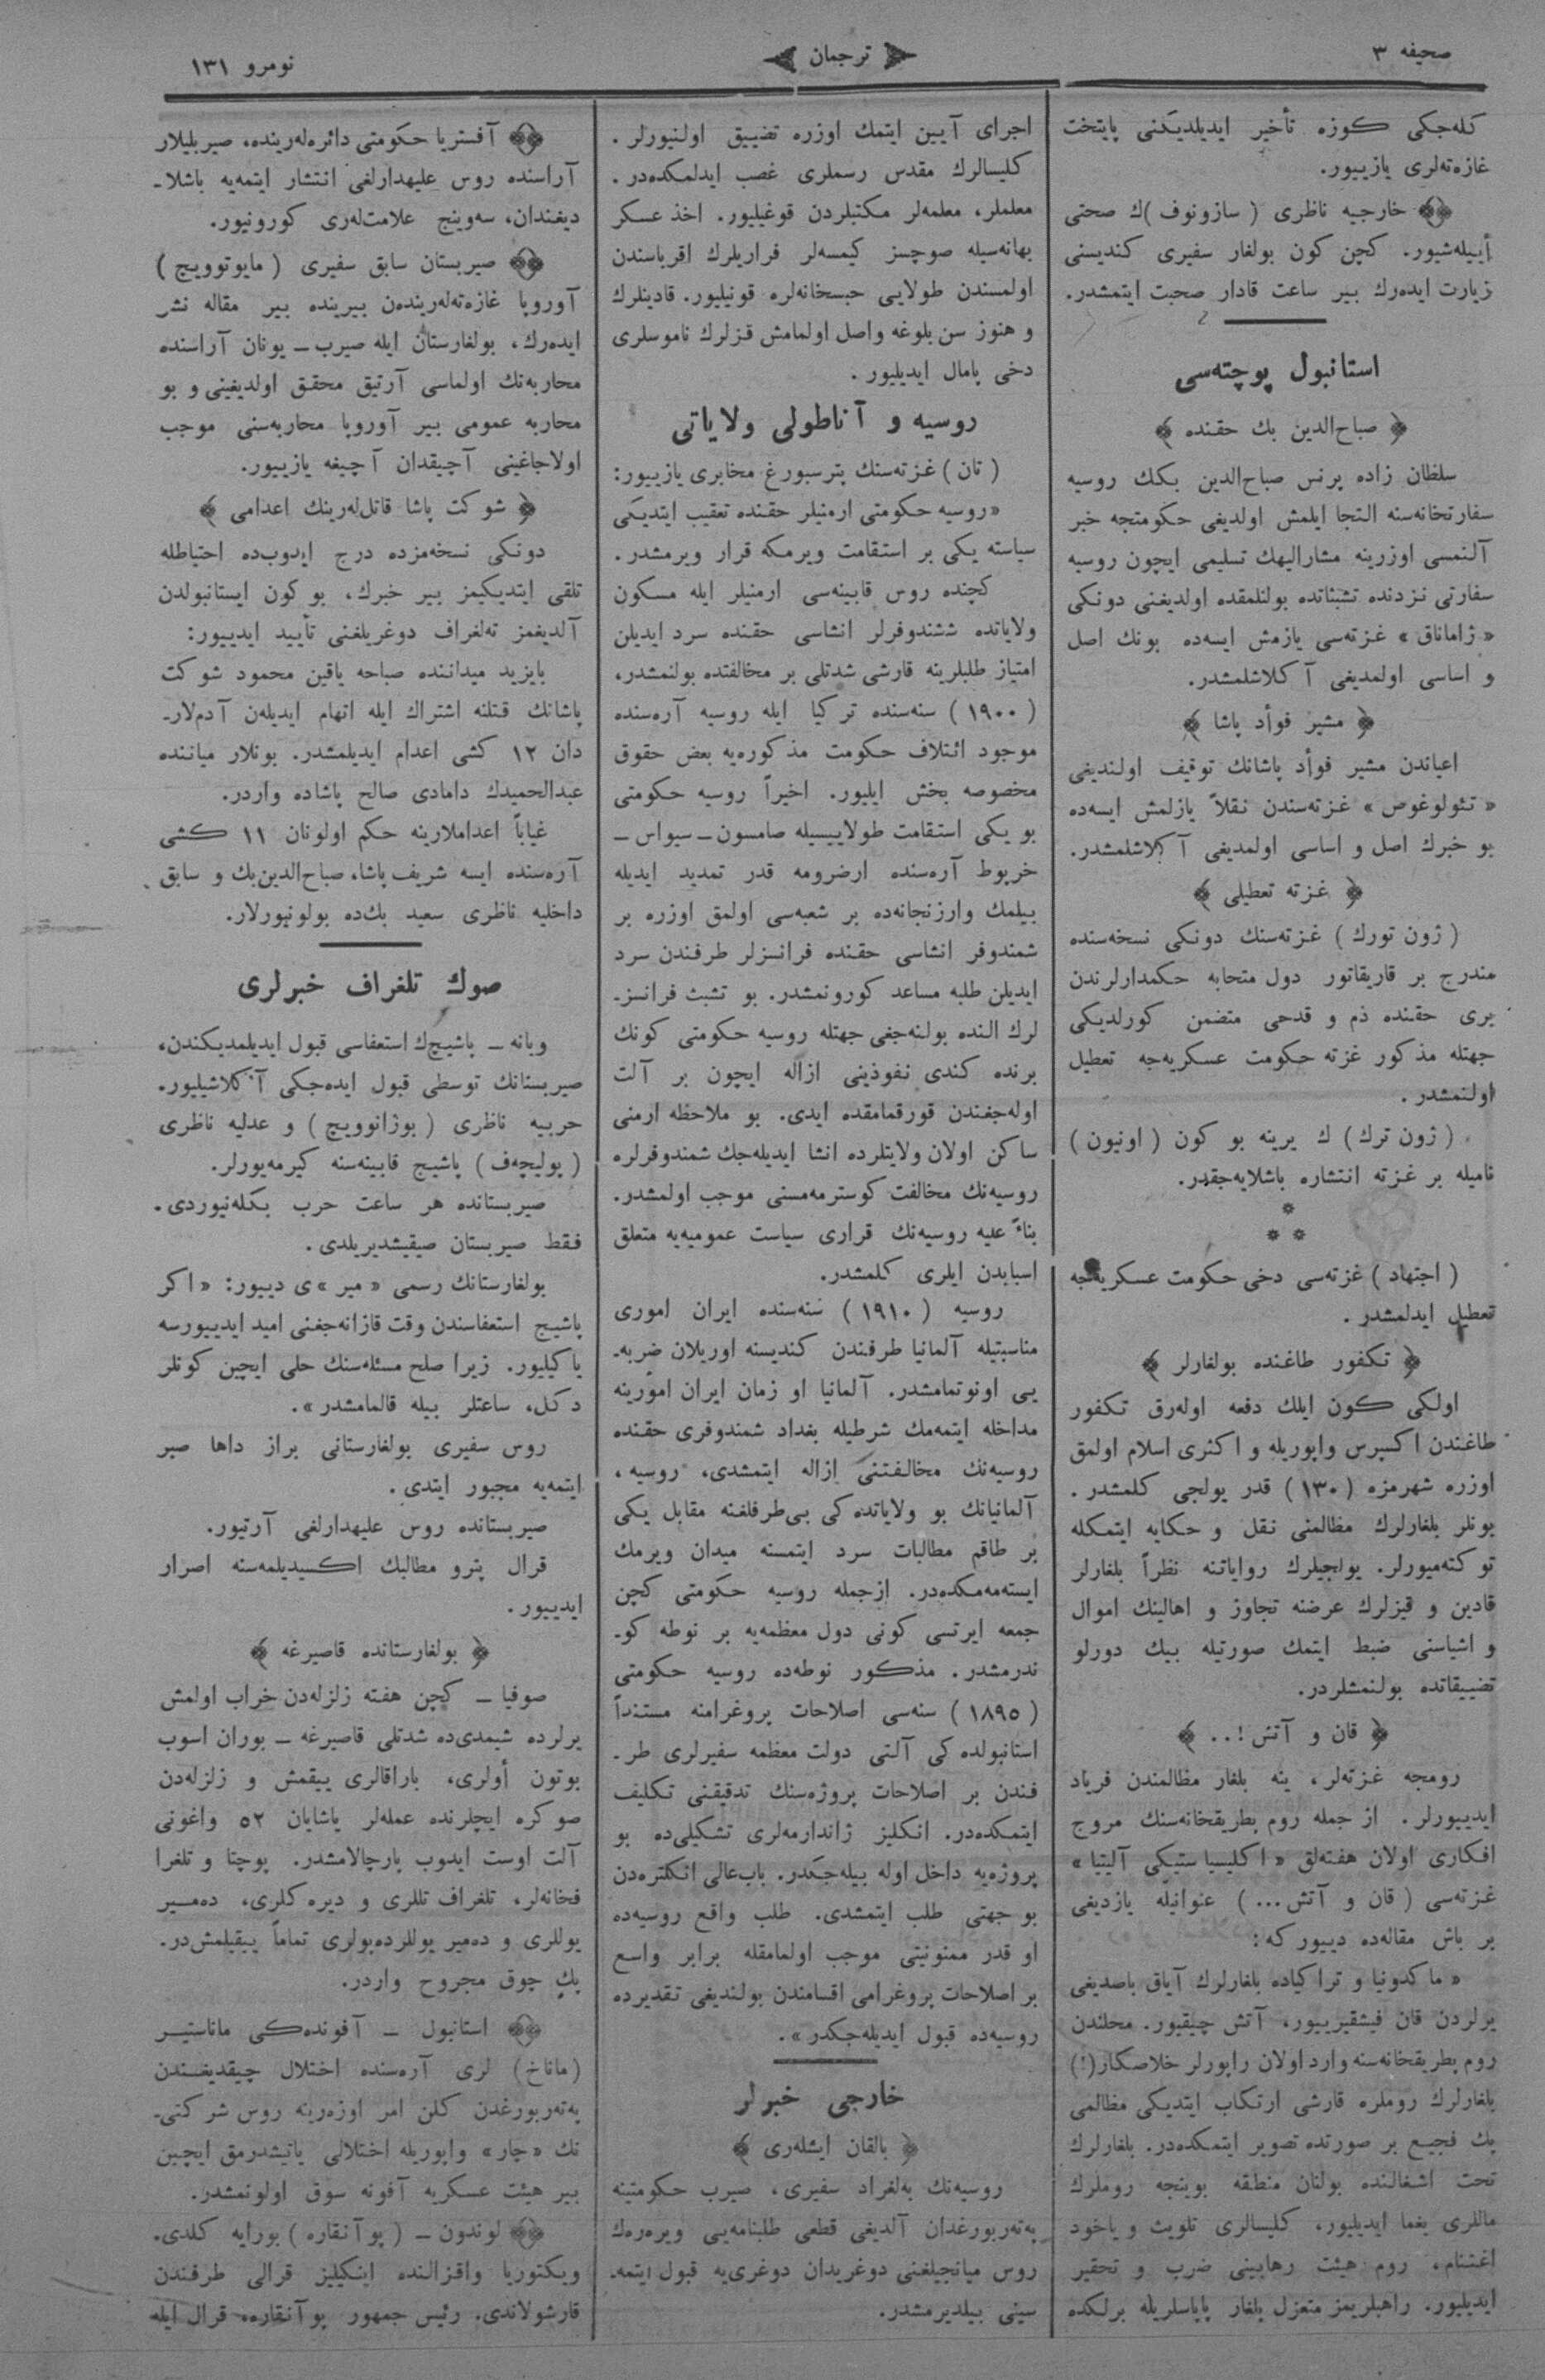 صحیفه ۳
ترجمان
نومرو ۱۳۱
كله‌جكی كوزه تأخیر ایدیلدیكنی پایتخت
غازه‌ته‌لری یازییور.
خارجیه ناظری ( سازونوف )ك صحتی
أییله‌شیور. كچن كون بولغار سفیری كندیسنی
زیارت ایده‌رك بیر ساعت قادار صحبت ایتمشدر.
استانبول پوچته‌سی
﴿ صباح‌الدین بك حقنده ﴾
سلطان زاده پرنس صباح‌الدین بكك روسیه
سفارتخانه‌سنه التجا ایلمش اولدیغی حكومتجه خبر
آلنمسی اوزرینه مشارالیهك تسلیمی ایچون روسیه
سفارتی نزدنده تشبثاتده بولنلمقده اولدیغنی دونكی
« ژاماناق » غزته‌سی یازمش ایسه‌ده بونك اصل
و اساسی اولمدیغی آكلاشلمشدر.
﴿ مشیر فوأد پاشا ﴾
اعیاندن مشیر فوأد پاشانك توقیف اولندیغی
« نئولوغوص » غزته‌سندن نقلاً یازلمش ایسه‌ده
بو خبرك اصل و اساسی اولمدیغی آكلاشلمشدر.
﴿ غزته تعطیلی ﴾
( ژون تورك ) غزته‌سنك دونكی نسخه‌سنده
مندرج بر قاریقاتور دول متحابه حكمدارلرندن
بری حقنده ذم و قدحی متضمن كورلدیكی
جهتله مذكور غزته حكومت عسكریه‌جه تعطیل
اولنمشدر.
( ژون ترك ) ك یرینه بو كون ( اونیون )
نامیله بر غزته انتشاره باشلایه‌جقدر.
*
* *
( اجتهاد ) غزته‌سی دخی حكومت عسكریه‌جه
تعطیل ایدلمشدر.
﴿ تكفور طاغنده بولغارلر ﴾
اولكی كون ایلك دفعه اوله‌رق تكفور
طاغندن اكسپرس واپوریله و اكثری اسلام اولمق
اوزره شهرمزه ( ۱۳۰ ) قدر یولجی كلمشدر.
بونلر بلغارلرك مظالمنی نقل و حكایه ایتمكله
توكته‌میورلر. یولجیلرك روایاتنه نظراً بلغارلر
قادین و قیزلرك عرضنه تجاوز و اهالینك اموال
و اشیاسنی ضبط ایتمك صورتیله بیك دورلو
تضییقاتده بولنمشلردر.
﴿ قان و آتش!.. ﴾
رومجه غزته‌لر، ینه بلغار مظالمندن فریاد
ایدییورلر. از جمله روم بطریقخانه‌سنك مروج
افكاری اولان هفته‌لق « اكلیسیاستیكی آلیتیا »
غزته‌سی ( قان و آتش... ) عنوانیله یازدیغی
بر باش مقاله‌ده دییور كه :
« ماكدونیا و تراكیاده بلغارلرك آیاق باصدیغی
یرلردن قان فیشقیرییور، آتش چیقیور. محلندن
روم بطریقخانه‌سنه وارد اولان راپورلر خلاصكار(!)
بلغارلرك روملره قارشی ارتكاب ایتدیكی مظالمی
پك فجیع بر صورتده تصویر ایتمكده‌در. بلغارلرك
تحت اشغالنده بولنان منطقه بوینجه روملرك
ماللری یغما ایدیلیور، كلیسالری تلویث و یاخود
اغتنام، روم هیئت رهابینی ضرب و تحقیر
ایدیلیور. راهبلریمز متعزل بلغار پاپاسلریله برلكده
اجرای آیین ایتمك اوزره تضییق اولنیورلر.
كلیسالرك مقدس رسملری غصب ایدلمكده‌در.
معلملر، معلمه‌لر مكتبلردن قوغیلیور. اخذ عسكر
بهانه‌سیله صوچسز كیمسه‌لر فراریلرك اقرباسندن
اولمسندن طولایی حبسخانه‌لره قونیلیور. قادینلرك
و هنوز سن بلوغه واصل اولمامش قزلرك ناموسلری
دخی پامال ایدیلیور.
روسیه و آناطولی ولایاتی
( تان ) غزته‌سنك پترسبورغ مخابری یازییور:
« روسیه حكومتی ارمنیلر حقنده تعقیب ایتدیكی
سیاسته یكی بر استقامت ویرمكه قرار ویرمشدر.
كچنده روس قابینه‌سی ارمنیلر ایله مسكون
ولایاتده شمندوفرلر انشاسی حقنده سرد ایدیلن
امتیاز طلبلرینه قارشی شدتلی بر مخالفتده بولنمشدر،
( ۱۹۰۰ ) سنه‌سنده تركیا ایله روسیه آره‌سنده
موجود ائتلاف حكومت مذكوره‌یه بعض حقوق
مخصوصه بخش ایلیور. اخیراً روسیه حكومتی
بو یكی استقامت طولاییسیله صامسون ــ سیواس ــ
خرپوط آره‌سنده ارضرومه قدر تمدید ایدیله
بیلمك وارزنجانه‌ده بر شعبه‌سی اولمق اوزره بر
شمندوفر انشاسی حقنده فرانسزلر طرفندن سرد
ایدیلن طلبه مساعد كورونمشدر. بو تشبث فرانسزـ
لرك النده بولنه‌جغی جهتله روسیه حكومتی كونك
برنده كندی نفوذینی ازاله ایچون بر آلت
اوله‌جغندن قورقمامقده ایدی. بو ملاحظه ارمنی
ساكن اولان ولایتلرده انشا ایدیله‌جك شمندوفرلره
روسیه‌نك مخالفت كوسترمه‌مسنی موجب اولمشدر.
بناءً علیه روسیه‌نك قراری سیاست عمومیه‌یه متعلق
اسبابدن ایلری كلمشدر.
روسیه ( ۱۹۱۰ ) سنه‌سنده ایران اموری
مناسبتیله آلمانیا طرفندن كندیسنه اوریلان ضربه‌ـ
یی اونوتمامشدر. آلمانیا او زمان ایران امورینه
مداخله ایتمه‌مك شرطیله بغداد شمندوفری حقنده
روسیه‌نك مخالفتنی ازاله ایتمشدی، روسیه،
آلمانیانك بو ولایاتده‌كی بی‌طرفلغنه مقابل یكی
بر طاقم مطالبات سرد ایتمسنه میدان ویرمك
ایسته‌مه‌مكده‌در. ازجمله روسیه حكومتی كچن
جمعه ایرتسی كونی دول معظمه‌یه بر نوطه كوـ
ندرمشدر. مذكور نوطه‌ده روسیه حكومتی
( ۱۸۹۵ ) سنه‌سی اصلاحات پروغرامنه مستنداً
استانبولده‌كی آلتی دولت معظمه سفیرلری طرـ
فندن بر اصلاحات پروژه‌سنك تدقیقنی تكلیف
ایتمكده‌در. انكلیز ژاندارمه‌لری تشكیلی‌ده بو
پروژه‌یه داخل اوله بیله‌جكدر. باب‌عالی انكلتره‌دن
بو جهتی طلب ایتمشدی. طلب واقع روسیه‌ده
او قدر ممنونیتی موجب اولمامقله برابر واسع
بر اصلاحات پروغرامی اقسامندن بولندیغی تقدیرده
روسیه‌ده قبول ایدیله‌جكدر ».
خارجی خبرلر
﴿ بالقان ایشله‌ری ﴾
روسیه‌نك به‌لغراد سفیری، صیرب حكومتینه
په‌ته‌ربورغدان آلدیغی قطعی طلبنامه‌یی ویره‌ره‌ك
روس میانجیلغنی دوغریدان دوغری‌یه قبول ایتمه‌ـ
سینی بیلدیرمشدر.
آفستریا حكومتی دائره‌له‌رینده، صیربلیلار
آراسنده روس علیهدارلغی انتشار ایتمه‌یه باشلاـ
دیغندان، سه‌وینج علامت‌له‌ری كورونیور.
صیربستان سابق سفیری ( مایوتوویچ )
آوروپا غازه‌ته‌له‌رینده‌ن بیرینده بیر مقاله نشر
ایده‌رك، بولغارستان ایله صیرب ــ یونان آراسنده
محاربه‌نك اولماسی آرتیق محقق اولدیغینی و بو
محاربه عمومی بیر آوروپا محاربه‌سنی موجب
اولاجاغینی آچیقدان آچیغه یازییور.
﴿ شوكت پاشا قاتل‌له‌رینك اعدامی ﴾
دونكی نسخه‌مزده درج ایدوب‌ده احتیاطله
تلقی ایتدیكیمز بیر خبرك، بو كون ایستانبولدن
آلدیغمز ته‌لغراف دوغریلغنی تأیید ایدییور:
بایزید میداننده صباحه یاقین محمود شوكت
پاشانك قتلنه اشتراك ایله اتهام ایدیله‌ن آدم‌لارـ
دان ۱۲ كشی اعدام ایدیلمشدر. بونلار میاننده
عبدالحمیدك دامادی صالح پاشاده واردر.
غیاباً اعداملارینه حكم اولونان ۱۱ كشی
آره‌سنده ایسه شریف پاشا، صباح‌الدین‌بك و سابق
داخلیه ناظری سعید بك‌ده بولونیورلار.
صوك تلغراف خبرلری
ویانه ــ پاشیچ‌ك استعفاسی قبول ایدیلمدیكندن،
صیربستانك توسطی قبول ایده‌جكی آكلاشیلیور.
حربیه ناظری ( بوژانوویچ ) و عدلیه ناظری
( پولیچه‌ف ) پاشیچ قابینه‌سنه كیرمه‌یورلر.
صیربستانده هر ساعت حرب بكله‌نیوردی.
فقط صیربستان صیقیشدیریلدی.
بولغارستانك رسمی « میر »ی دییور: « اكر
پاشیچ استعفاسندن وقت قازانه‌جغنی امید ایدییورسه
یاكیلیور. زیرا صلح مسئله‌سنك حلی ایچین كونلر
دكل، ساعتلر بیله قالمامشدر ».
روس سفیری بولغارستانی براز داها صبر
ایتمه‌یه مجبور ایتدی.
صیربستانده روس علیهدارلغی آرتیور.
قرال پترو مطالبك اكسیدیلمه‌سنه اصرار
ایدییور.
﴿ بولغارستانده قاصیرغه ﴾
صوفیا ــ كچن هفته زلزله‌دن خراب اولمش
یرلرده شیمدی‌ده شدتلی قاصیرغه ــ بوران اسوب
بوتون أولری، باراقالری ییقمش و زلزله‌دن
صوكره ایچلرنده عمله‌لر یاشایان ۵۲ واغونی
آلت اوست ایدوب پارچالامشدر. پوچتا و تلغرا
فخانه‌لر، تلغراف تللری و دیره‌كلری، ده‌میر
یوللری و ده‌میر یوللرده‌بولری تماماً ییقیلمش‌در.
پك چوق مجروح واردر.
استانبول ــ آفونده‌كی ماناستیر
(ماناخ) لری آره‌سنده اختلال چیقدیغندن
په‌ته‌ربورغدن كلن امر اوزه‌رینه روس شركتی‌ـ
نك «چار» واپوریله اختلالی یاتیشدرمق ایچین
بیر هیئت عسكریه آفونه سوق اولونمشدر.
لوندون ــ ( پوآنقاره ) بورایه كلدی.
ویكتوریا واقزالنده اینكیلیز قرالی طرفندن
قارشولاندی. رئیس جمهور پوآنقاره، قرال ایله